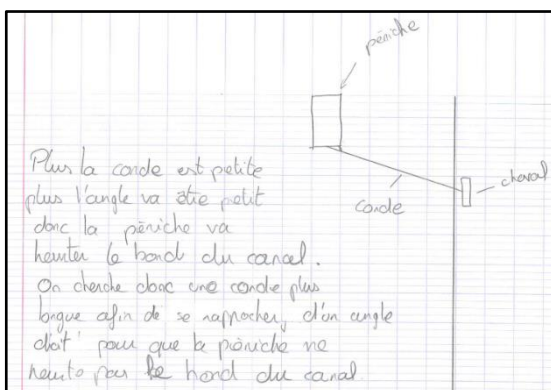 péniche
cheval
corde
Plus la corde est petite
plus l'angle va être petit
donc la péniche va
heurter le bord du canal.
On cherche donc une corde plus
longue afin de se rapprocher, d'un angle
droit pour que la péniche ne
heurte pas le bord du canal